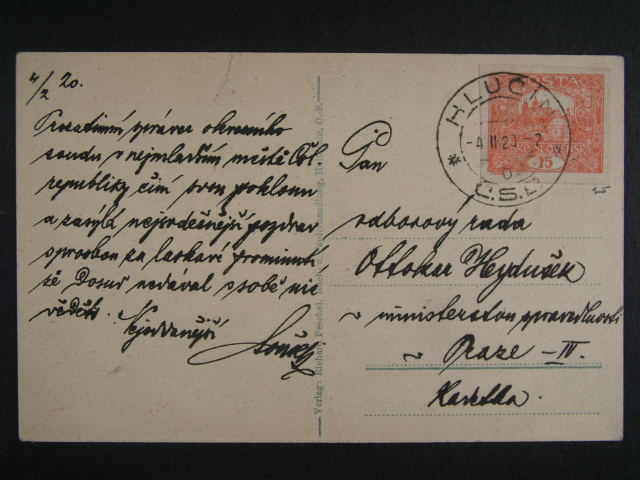 4/2 20.
Prozatimní správce okresního
soudu v nejmladším městě Čsl
republiky činí svou poklonu
a zasílá nejsrdečnější pozdrav
s prosbou za laskavé prominutí
že Dosud nedával o sobě nic
věděti.
Nejoddanější
Pan
odborový rada
Ottokar Heydušek
v ministerstvu spravedlnosti
v Praze - IV.
Karetka
HLUČÍN
-4.II.20.-
Č.S.
POŠTA
ČESKO-SLOVENSKÁ
15
Verlag: Richard Peschel,